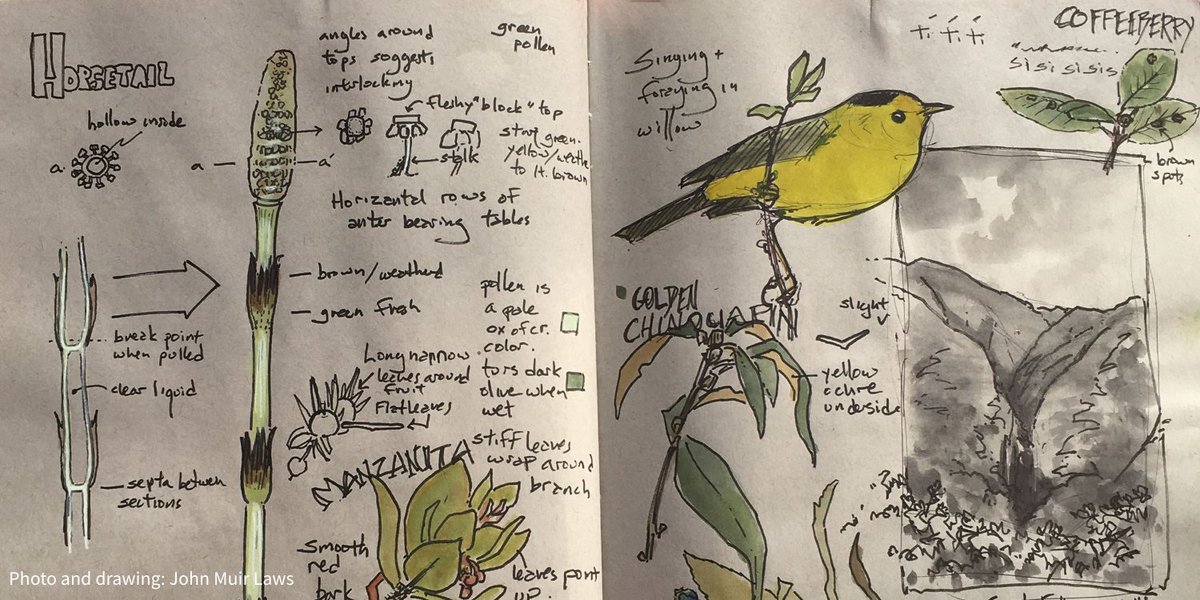 HORSETAIL
hollow inside
a
angles around
tops suggests
interlocking
green
pollen
fleshy "block" top
stalk
start green.
to lt. brown
a
a'
Horizontal rows of
anter bearing tables
brown/weatherd
green fresh
break point
when pulled
clear liquid
septa betwen
sections
pollen is
a pale
color.
turs dark
olive when
wet
Long narrow
leaves around
fruit
Flat leaves
MANZANITA
stiff leaves
wrap around
branch
Smooth
red
bark
leaves point
up.
Photo and drawing: John Muir Laws
Singing +
foraging in
willow
COFFEEBERRY
si si si sis
brown
spots
GOLDEN
CHINQUAPIN
slight
V
yellow
ochre
underside